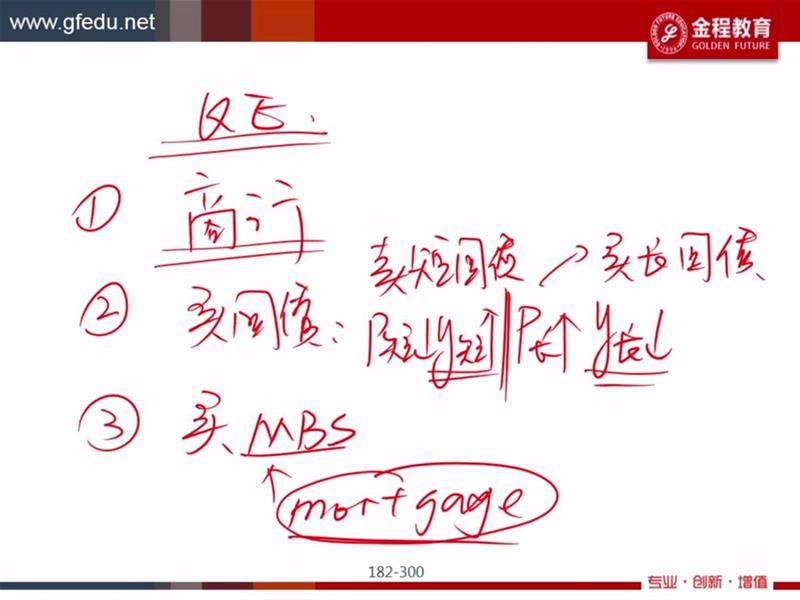 www.gfedu.net
金程教育
GOLDEN FUTURE
QE.
① 商行
卖短国债 ↗ 买长国债
② 买国债: P短↓ y短↑ P长↑ y长↓
③ 买 MBS
↑
mortgage
182-300
专业·创新·增值